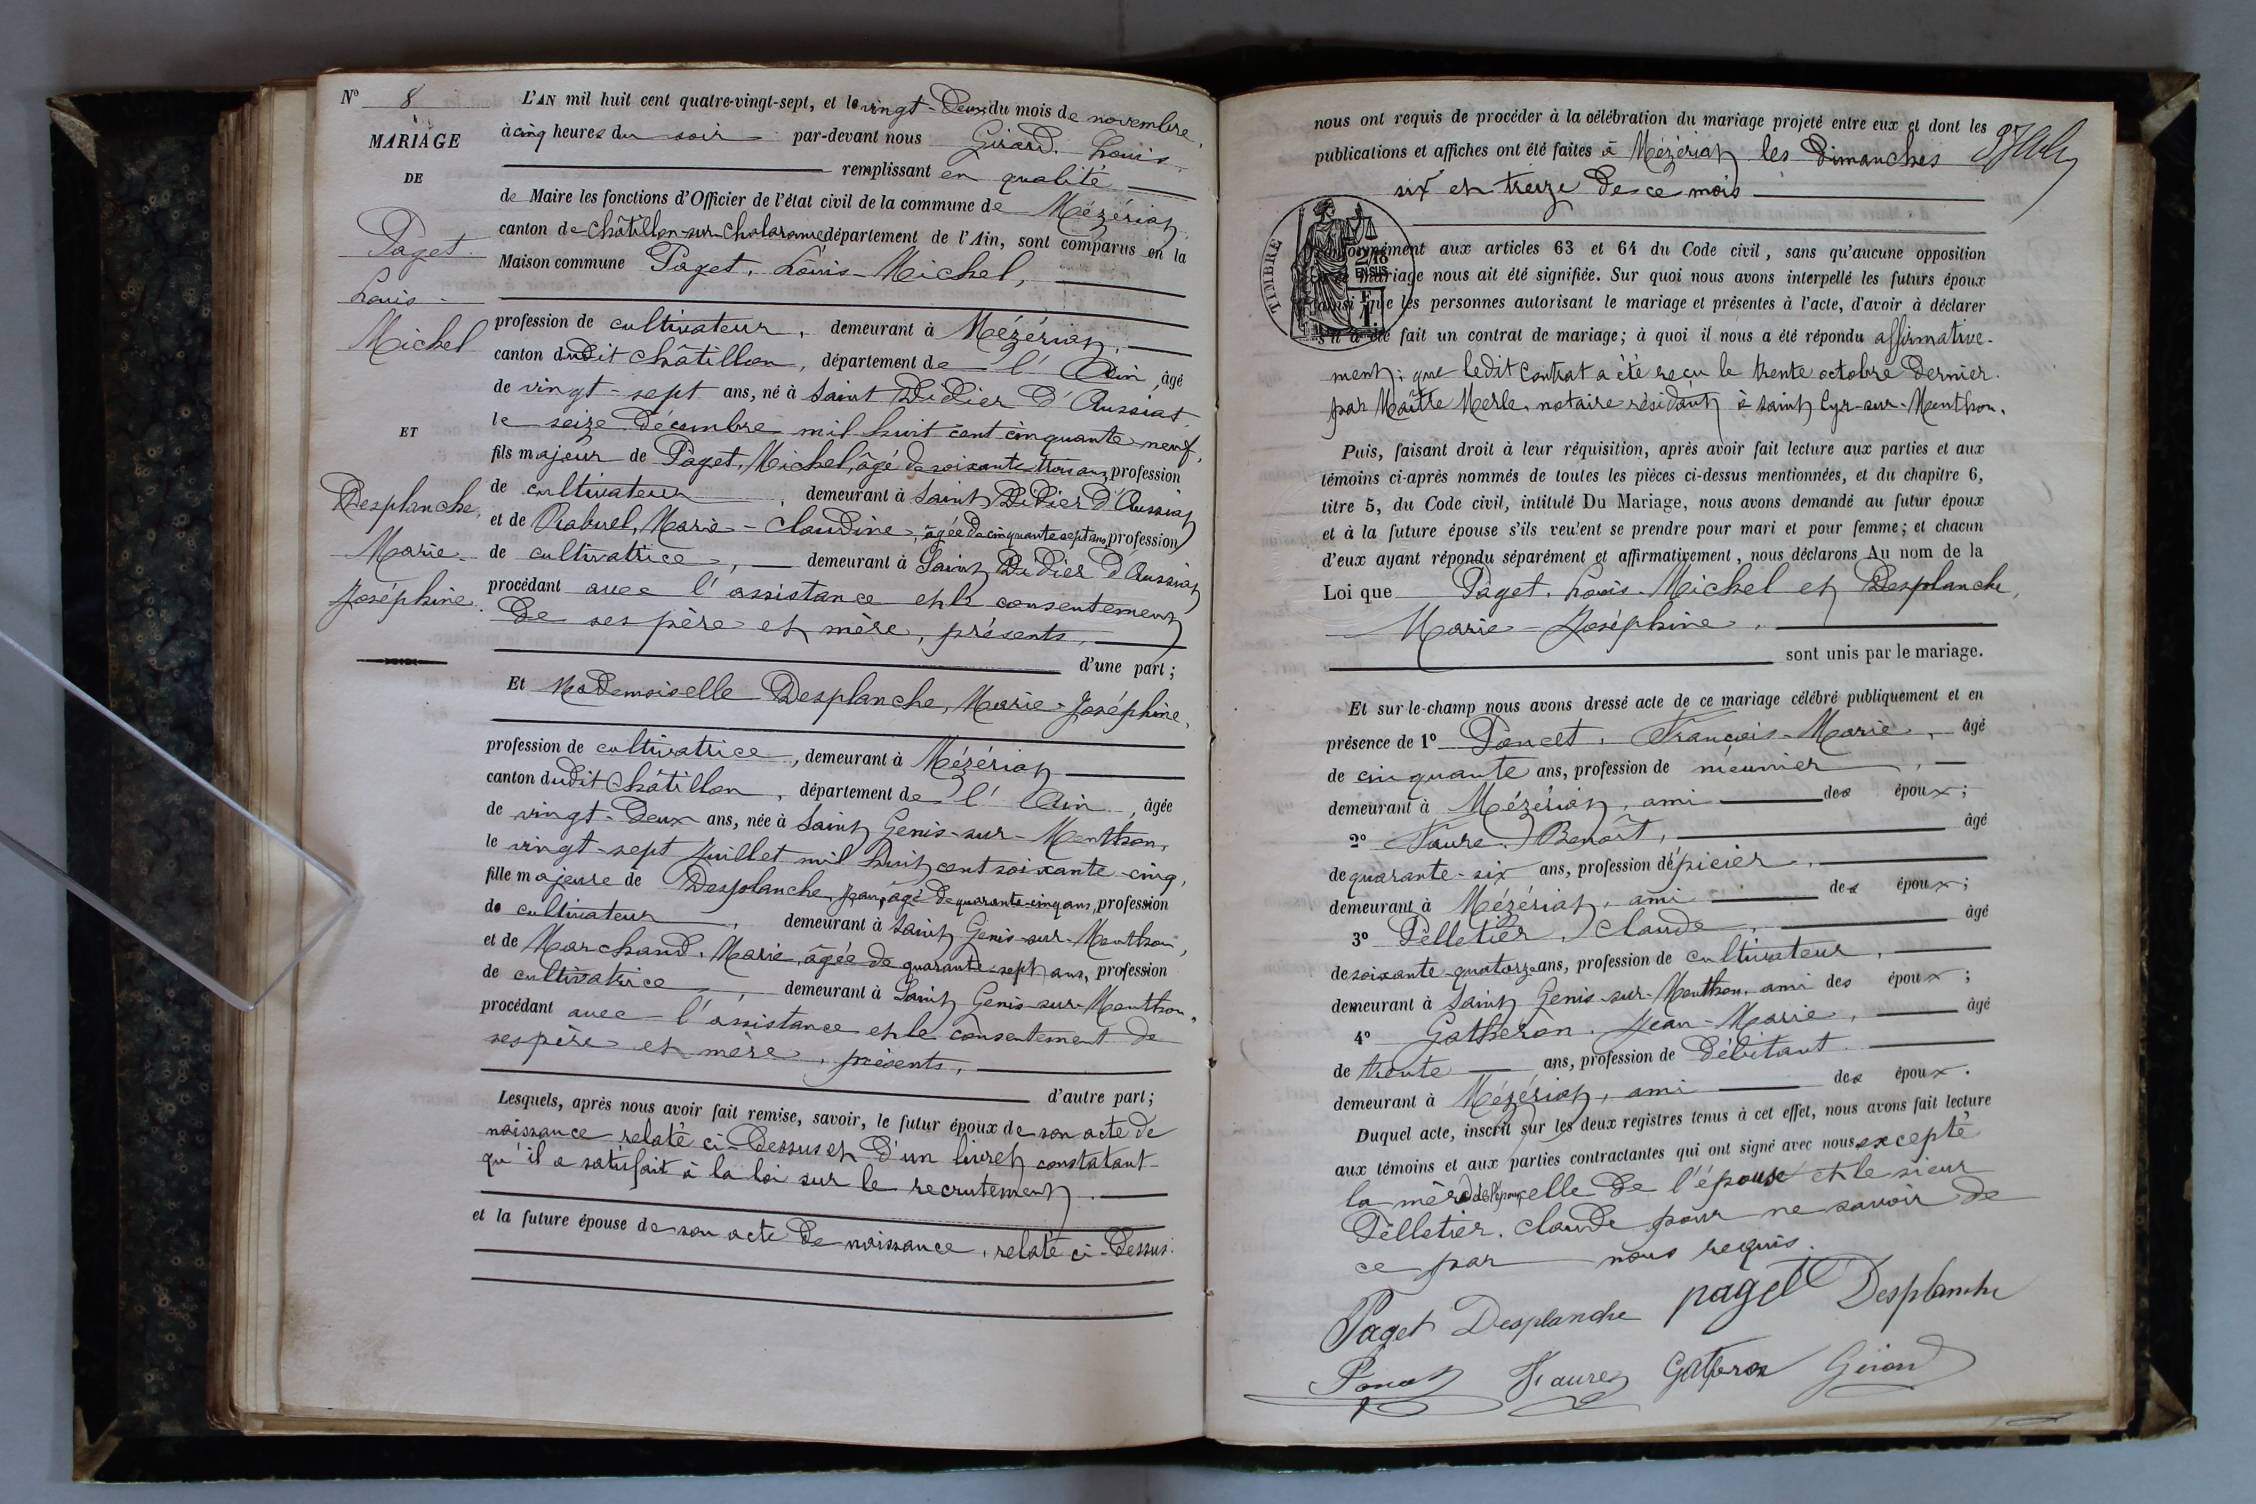 N° 8
MARIAGE
DE
Paget
Louis
Michel
ET
Desplanche,
Marie
Joséphine.
L'AN mil huit cent quatre-vingt-sept, et le vingt-deux du mois de novembre,
à cinq heures du soir par-devant nous Girard, Louis,
remplissant en qualité
de Maire les fonctions d'Officier de l'état civil de la commune de Mézériat,
canton de Châtillon-sur-Chalaronne département de l'Ain, sont comparus en la
Maison commune Paget, Louis-Michel,
profession de cultivateur, demeurant à Mézériat,
canton dudit Châtillon, département de l'Ain, âgé
de vingt-sept ans, né à Saint Didier d'Aussiat
le seize décembre mil huit cent cinquante neuf,
fils majeur de Paget, Michel, âgé de soixante trois ans, profession
de cultivateur, demeurant à Saint Didier d'Aussiat
et de Raburel, Marie-Claudine, âgée de cinquante sept ans, profession
de cultivatrice, demeurant à Saint Didier d'Aussiat
procédant avec l'assistance et le consentement
de ses père et mère, présents,
d'une part;
Et Mademoiselle Desplanche, Marie-Joséphine,
profession de cultivatrice, demeurant à Mézériat
canton dudit Châtillon, département de l'Ain, âgée
de vingt-deux ans, née à Saint Genis-sur-Menthon,
le vingt-sept Juillet mil huit cent soixante-cinq,
fille majeure de Desplanche, Jean, âgé de quarante-cinq ans, profession
de cultivateur, demeurant à Saint Genis-sur-Menthon,
et de Marchand, Marie, âgée de quarante-sept ans, profession
de cultivatrice, demeurant à Saint Genis-sur-Menthon,
procédant avec l'assistance et le consentement de
ses père et mère, présents,
d'autre part;
Lesquels, après nous avoir fait remise, savoir, le futur époux de son acte de
naissance relaté ci-dessus et d'un livret constatant
qu'il a satisfait à la loi sur le recrutement.
et la future épouse de son acte de naissance, relaté ci-dessus.
nous ont requis de procéder à la célébration du mariage projeté entre eux et dont les
publications et affiches ont été faites à Mézériat les dimanches
six et treize de ce mois
TIMBRE
conformément aux articles 63 et 64 du Code civil, sans qu'aucune opposition
à ce mariage nous ait été signifiée. Sur quoi nous avons interpellé les futurs époux
ainsi que les personnes autorisant le mariage et présentes à l'acte, d'avoir à déclarer
s'il a été fait un contrat de mariage; à quoi il nous a été répondu affirmative-
ment; que ledit contrat a été reçu le trente octobre dernier
par Maître Merle, notaire résidant à Saint Cyr-sur-Menthon.
Puis, faisant droit à leur réquisition, après avoir fait lecture aux parties et aux
témoins ci-après nommés de toutes les pièces ci-dessus mentionnées, et du chapitre 6,
titre 5, du Code civil, intitulé Du Mariage, nous avons demandé au futur époux
et à la future épouse s'ils veulent se prendre pour mari et pour femme; et chacun
d'eux ayant répondu séparément et affirmativement, nous déclarons Au nom de la
Loi que Paget, Louis-Michel et Desplanche,
Marie-Joséphine,
sont unis par le mariage.
Et sur-le-champ nous avons dressé acte de ce mariage célébré publiquement et en
présence de 1° Poncet, François-Marie, âgé
de cinquante ans, profession de meunier,
demeurant à Mézériat, ami des époux;
2° Faure, Benoît, âgé
de quarante-six ans, profession d'épicier,
demeurant à Mézériat, ami des époux;
3° Pelletier, Claude, âgé
de soixante-quatorze ans, profession de cultivateur,
demeurant à Saint Genis-sur-Menthon, ami des époux;
4° Gatheron, Jean-Marie, âgé
de trente ans, profession de débitant
demeurant à Mézériat, ami des époux.
Duquel acte, inscrit sur les deux registres tenus à cet effet, nous avons fait lecture
aux témoins et aux parties contractantes qui ont signé avec nous excepté
la mère de l'époux, celle de l'épouse et le sieur
Pelletier, Claude pour ne savoir de
ce par nous requis.
Paget Desplanche paget Desplanche
Poncet Faure Gatheron Girard